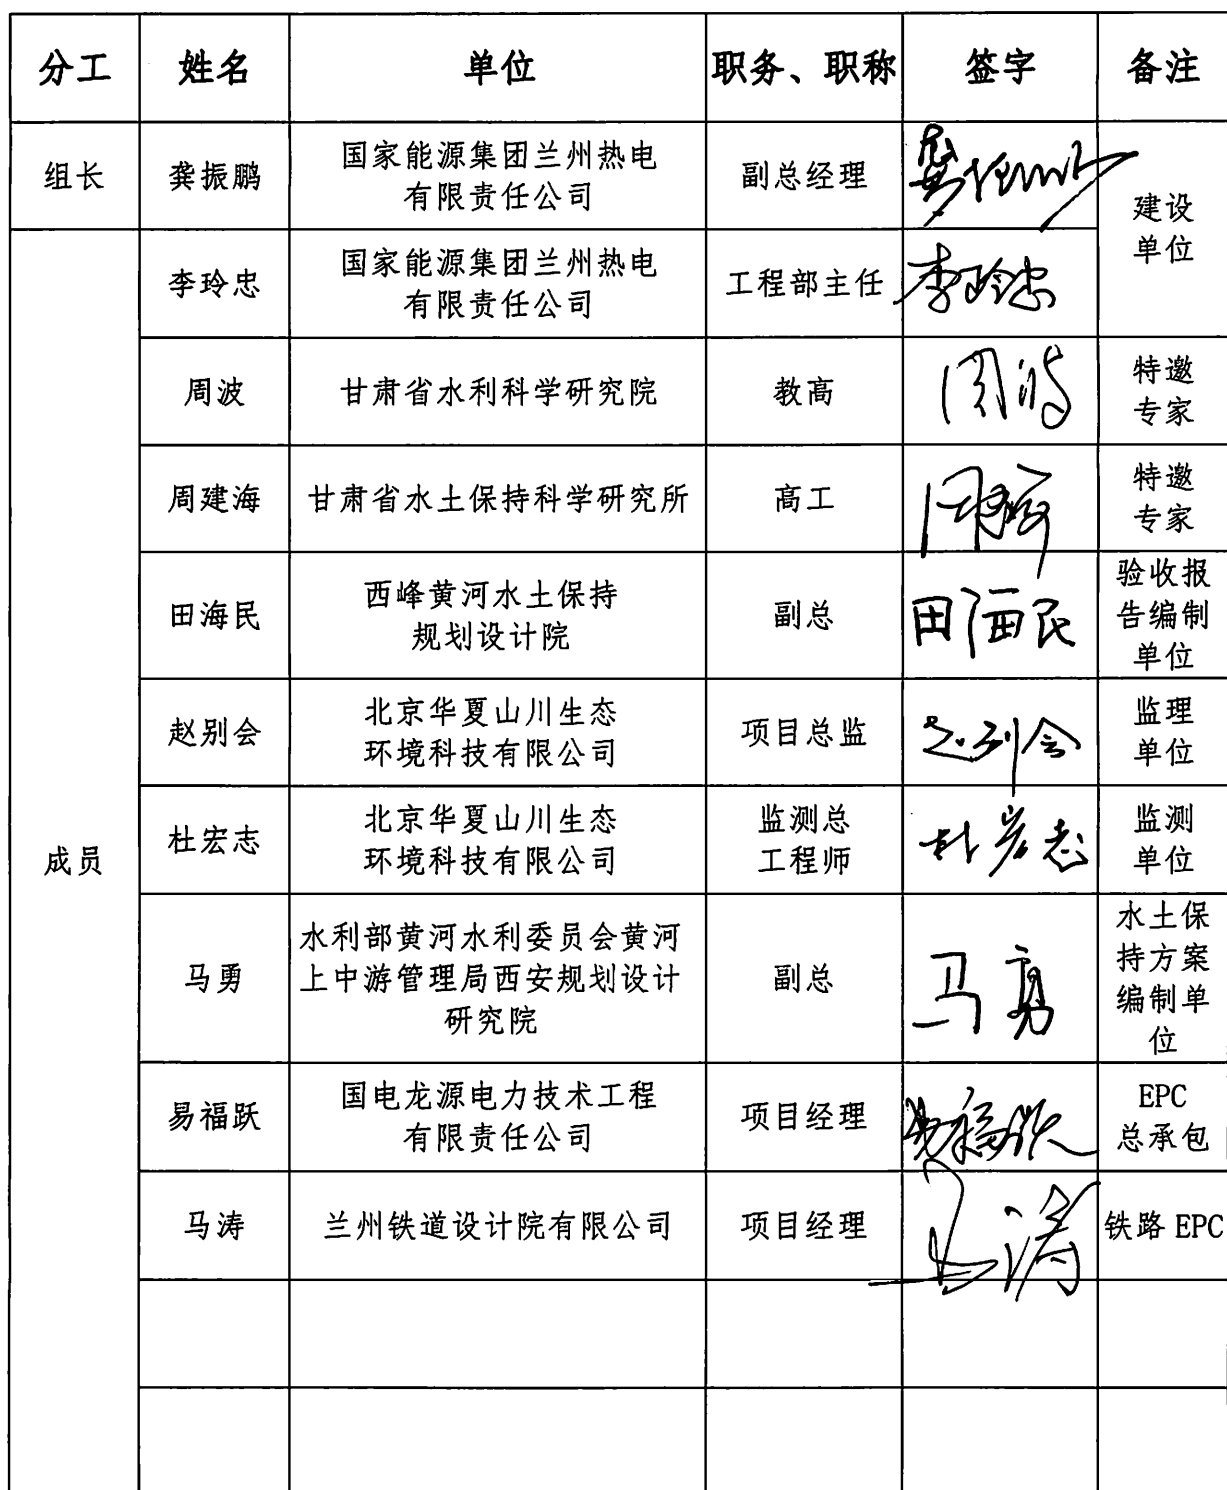 分工 姓名 单位 职务、职称 签字 备注
组长 龚振鹏 国家能源集团兰州热电
有限责任公司 副总经理 龚振鹏 建设
单位
成员 李玲忠 国家能源集团兰州热电
有限责任公司 工程部主任 李玲忠
周波 甘肃省水利科学研究院 教高 周波 特邀
专家
周建海 甘肃省水土保持科学研究所 高工 周建海 特邀
专家
田海民 西峰黄河水土保持
规划设计院 副总 田海民 验收报
告编制
单位
赵别会 北京华夏山川生态
环境科技有限公司 项目总监 赵别会 监理
单位
杜宏志 北京华夏山川生态
环境科技有限公司 监测总
工程师 杜宏志 监测
单位
马勇 水利部黄河水利委员会黄河
上中游管理局西安规划设计
研究院 副总 马勇 水土保
持方案
编制单
位
易福跃 国电龙源电力技术工程
有限责任公司 项目经理 易福跃 EPC
总承包
马涛 兰州铁道设计院有限公司 项目经理 马涛 铁路 EPC